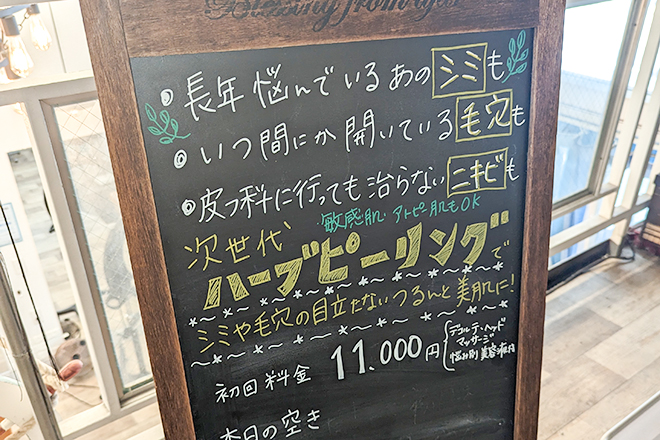 Blessing from
・長年悩んでいるあのシミも
・いつ間にか開いている毛穴も
・皮フ科に行っても治らないニキビも
敏感肌 アトピー肌もOK
次世代
ハーブピーリングで
シミや毛穴の目立たないつるんと美肌に!
初回料金 11.000円
デコルテ・ヘッド
マッサージ
悩み別 美容液
本日の空き